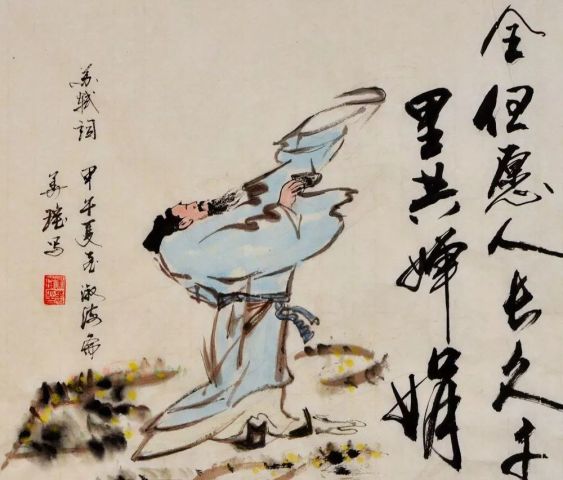 全但愿人长久千
里共婵娟
苏轼词 甲午夏
写